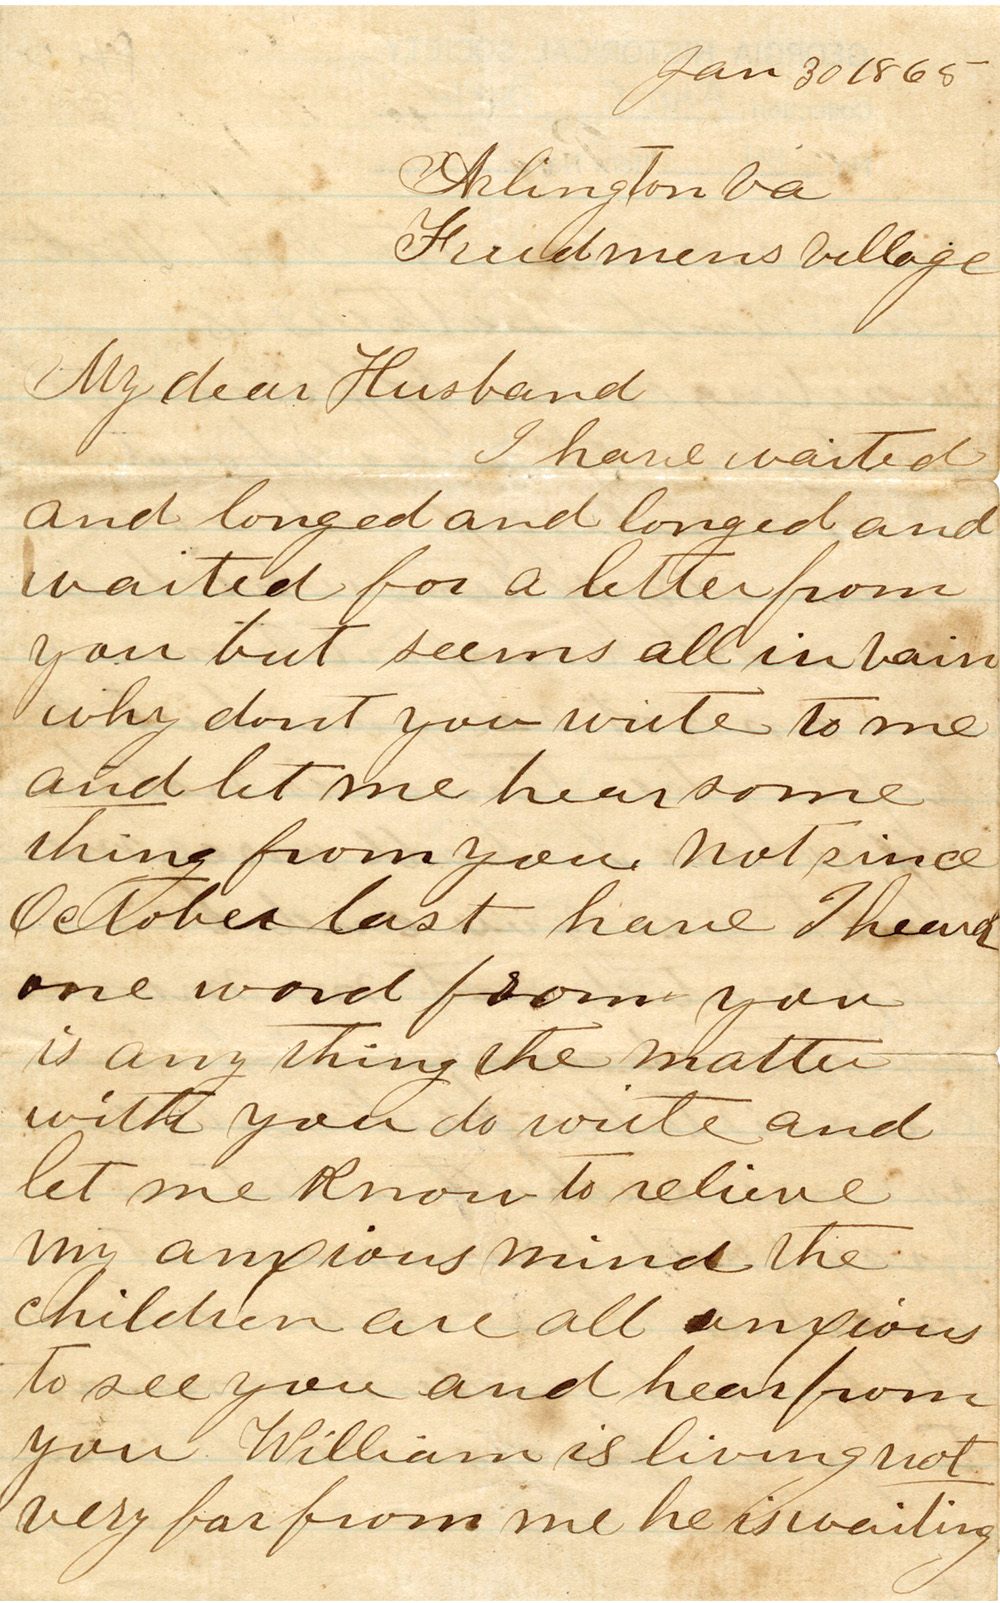 Jan 30 1865
Arlington Va
Freedmens Village
My dear Husband
I have waited
and longed and longed and
waited for a letter from
you but seems all in vain
why dont you write to me
and let me hear some
thing from you. Not since
October last have I heard
one word from you
is any thing the matter
with you do write and
let me know to relieve
my anxious mind the
children are all anxious
to see you and hear from
you William is living not
very far from me he is waiting